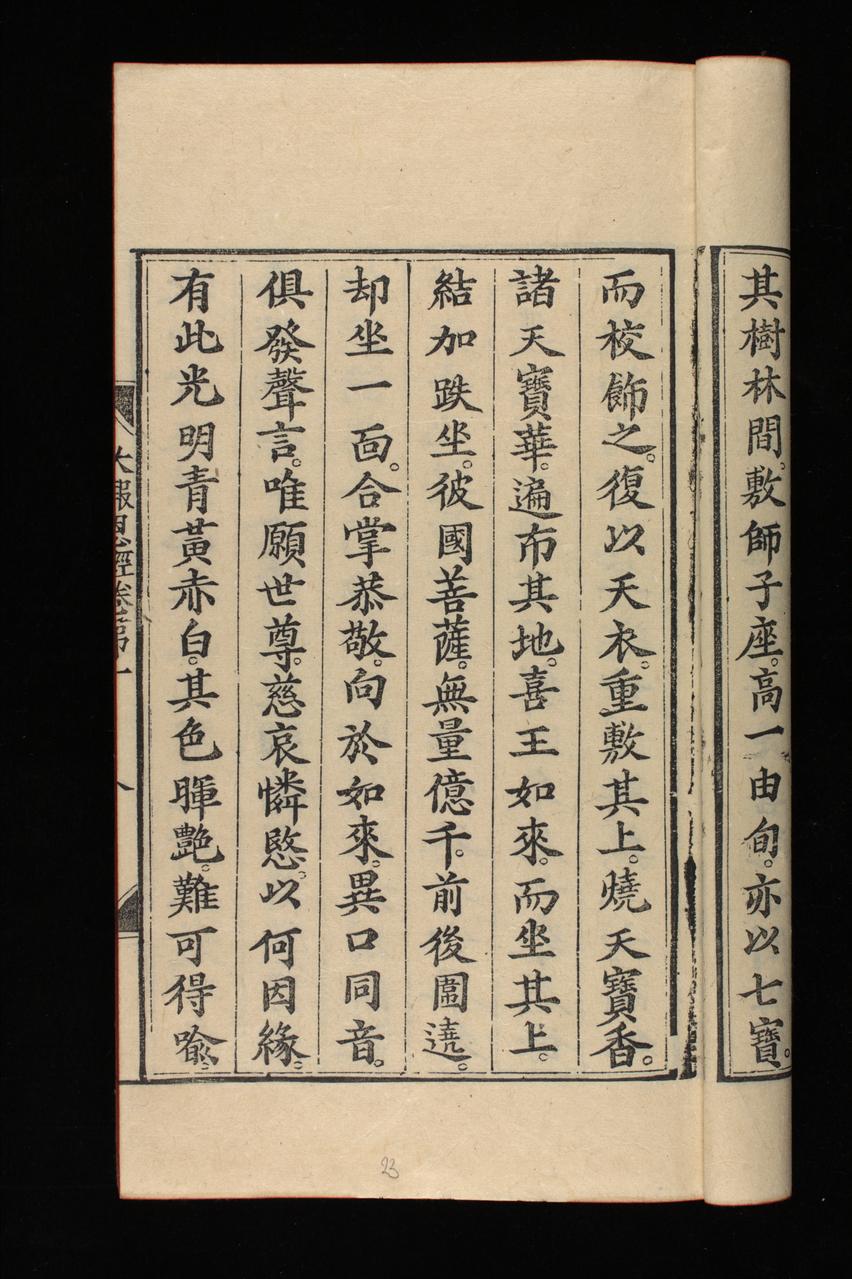 其樹林間。敷師子座。高一由旬。亦以七寶。
而校飾之。復以天衣。重敷其上。燒天寶香。
諸天寶華。遍布其地。喜王如來。而坐其上。
結加趺坐。彼國菩薩。無量億千。前後圍遶。
却坐一面。合掌恭敬。向於如來。異口同音。
俱發聲言。唯願世尊。慈哀憐愍。以何因緣。
有此光明青黃赤白。其色暉艷。難可得喻。
大報恩經卷第一
八
23